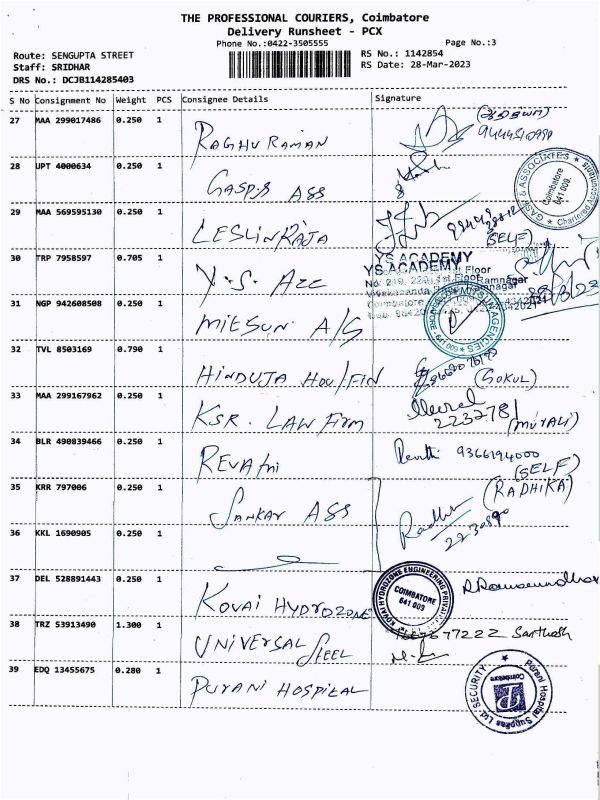 THE PROFESSIONAL COURIERS, Coimbatore
Delivery Runsheet - PCX
Phone No.:0422-3505555
Page No.:3
Route: SENGUPTA STREET
RS No.: 1142854
Staff: SRIDHAR
RS Date: 28-Mar-2023
DRS No.: DCJB114285403
S No Consignment No Weight PCS Consignee Details Signature
27 MAA 299017486 0.250 1 RAGHU RAMAN
28 UPT 4000634 0.250 1 GASPS ASS
GASP & ASSOCIATES Coimbatore 641 009. Chartered Accountants
29 MAA 569595130 0.250 1 LESLIN RAJA
(SELF)
30 TRP 7958597 0.705 1 Y.S. Acc
YS ACADEMY
YS ACADEMY
31 NGP 942608508 0.250 1 MITSUN A/S
AGENCIES
32 TVL 8503169 0.790 1 HINDUJA HOU/FIN
(GOKUL)
33 MAA 299167962 0.250 1 KSR. LAW FIRM
223278 (MURALI)
34 BLR 490839466 0.250 1 REVATHI
Revathi 9366194000
(SELF)
35 KRR 797006 0.250 1 SANKAR ASS
(RADHIKA)
Radhu
36 KKL 1690905 0.250 1
37 DEL 528891443 0.250 1 KOVAI HYDROZONE
KOVAI HYDROZONE ENGINEERING PRIVATE COIMBATORE 641 009
38 TRZ 53913490 1.300 1 UNIVERSAL STEEL
77222 Santhosh
39 EDQ 13455675 0.280 1 PURANI HOSPITAL
SECURITY Purani Hospital Supplies Ltd Coimbatore